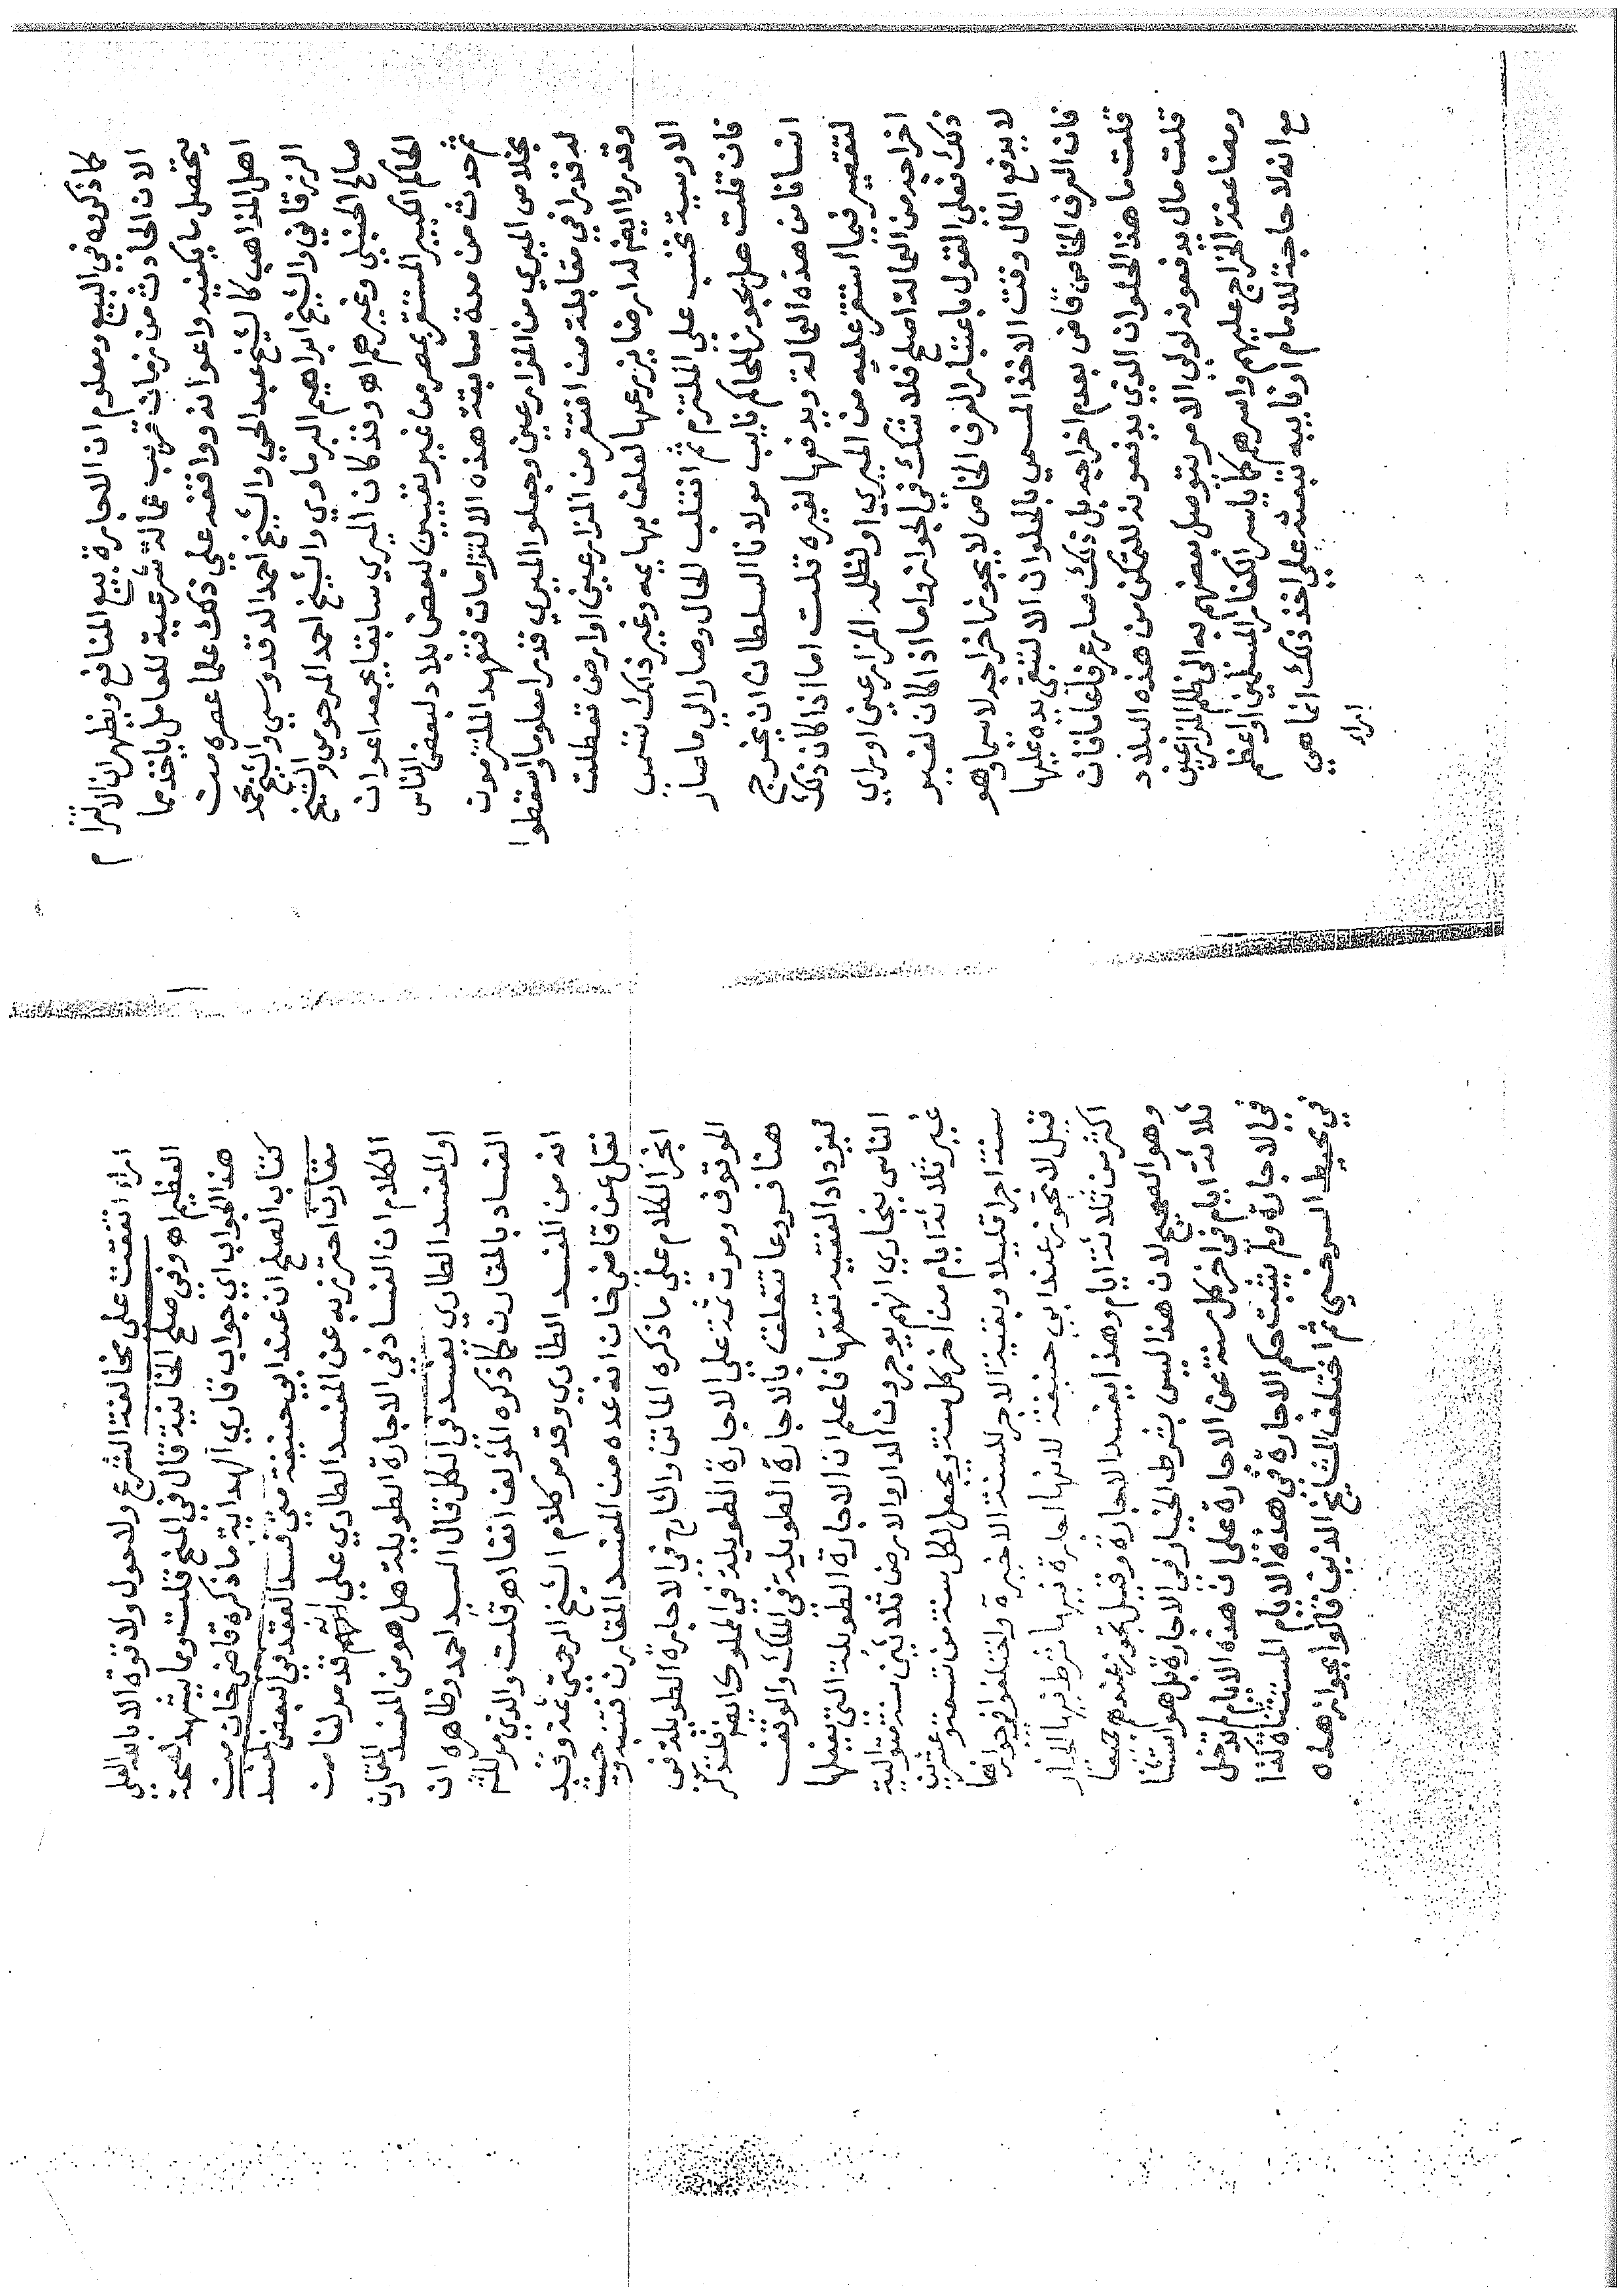 كما ذكروه في البيع ومعلوم ان الاجارة بيع المنافع ويظهر ان الالتزام
الان الحادث من زمان قريب عمالة شرعية للعامل ياخذ مما
يتحصل ما يكفيه واعوانه ووافقه علي ذلك علما عصره من
اهل المذاهب كالشيخ عبد الحي والشيخ احمد الدقدوسي والشيخ محمد
الزرقاني والشيخ ابراهيم البرماوي والشيخ احمد المرحومي والشيخ
صالح الحنبلي وغيرهم اه وقد كان الميري سابقا يجمعه اعوان
الحاكم الكبير المستقر بمصر من غير تعيين لبعض بلاد لبعض الناس
ثم حدث من مدة سابقة هذه الالتزامات فتعهد الملتزمون
بخلاص الميري من المزارعين وجعلوا الميري قدرا معلوما واسقطوا
له قدرا في مقابلة من افتقر من المزارعين او ارض تعطلت
وقدروا ايضا له ارضا يزرعها لعلف بهايمه وغير ذلك تسمي
الاوسية تحسب علي الملتزم ثم انقلب الحال وصار الي ما صار
فان قلت هل يجوز للحاكم نايب مولانا السلطان ان يخرج
انسانا من هذه العمالة ويدفعها لغيره قلت اما اذا كان ذلك
لتقصير فيما استقر عليه من الميري او لظلمه المزارعين او راي
اخراجه من العمالة اصلح فلا شك في الجواز واما اذا كان لغير
ذلك فعلي القول باعتبار العرف الخاص لا يجوز اخراجه لا سيما وهو
لا يدفع المال وقت الاخذ المسمي بالحلوان الا لتبقي يده عليها
فان العرف الخاص قاض بعدم اخراجه بل ذلك صار عرفا عاما فان
قلت ما هذا الحلوان الذي يدفعونه للتمكن من هذه البلاد
قلت مال يدفعونه لولي الامر يتوصل بعضهم به الي ظلم المزارعين
ومضاعفة الخراج عليهم واسرهم كما ياسر الكفار المسلمين او اعظم
مع انه لا حاجة للامام او نايبه تبعثه علي اخذ ذلك انما هي
اراء
اراء اتفقت علي مخالفة الشرع ولا حول ولا قوة الا بالله العلي
العظيم اه وفي صلح الخانية قال في المنح قلت ومما يشهد لصحة
هذا الجواب اي جواب قاري الهداية ما ذكره قاضي خان من
كتاب الصلح ان عند ابي حنيفة متي فسد العقد في البعض لمفسد
مقارن احترز به عن المفسد الطاري علي انه قد مر لنا من
الكلام ان الفساد في الاجارة الطويلة هل هو من المفسد المقارن
او المفسد الطاري يفسد في الكل قال السيد احمد وظاهره ان
الفساد بالمقارن كما ذكره المؤلف انفا اه قلت والذي مر لك ثم
انه من المفسد الطاري وقد مر كلام الشيخ الرحمتي ثمة وقيد
نقل عن قاضي خان انه عده من المفسد المقارن فتنبه حيث
انجر الكلام علي ما ذكره الماتن والشارح في الاجارة الطويلة في
الموقوف ومرت ثمة علي الاجارة الطويلة في المملوك ايضا فلنذكر
هنا فروعا تتعلق بالاجارة الطويلة في الملك والوقف
ليزداد الفقيه تفقها فاعلم ان الاجارة الطويلة التي يفعلها
الناس ببخاري انهم يوجرون الدار والارض ثلاثين سنة متوالية
غير ثلاثة ايام من اخر كل سنة ويجعل لكل سنة من تسعة وعشرين
سنة اجرا قليلا وبقية الاجر للسنة الاخيرة واختلفوا في جوازها
قيل لا تجوز عند ابي حنيفة لانها اجارة فيها شرط فيها الخيار
اكثر من ثلاثة ايام وهذا يفسد الاجارة وقيل تجوز عندهم جميعا
وهو الصحيح لان هذا ليس بشرط الخيار في الاجارة بل هو استثنا
ثلاثة ايام في اخر كل سنة عن الاجارة علي ان هذه الايام لم تدخل
في الاجارة ولم يثبت حكم الاجارة في هذه الايام المستثناة كذا
في محيط السرخسي ثم اختلف المشايخ الذين قالوا بجواز هذه